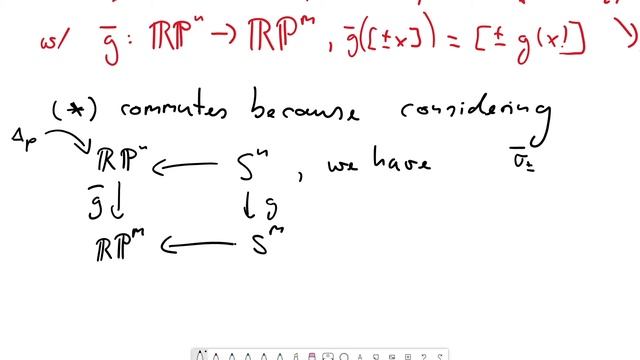 w/ ḡ : ℝℙⁿ → ℝℙᵐ, ḡ([±x]) = [± g(x)]
(*) commutes because considering
Δp
ℝℙⁿ ← Sⁿ, we have σ̄±
ḡ ↓ ↓ g
ℝℙᵐ ← Sᵐ